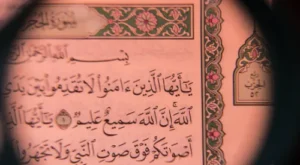 سُورَةُ الحُجُرَاتِ
بِسْمِ اللَّهِ الرَّحْمَٰنِ
يَا أَيُّهَا الَّذِينَ آمَنُوا لَا تُقَدِّمُوا بَيْنَ يَدَيِ
اللَّهَ إِنَّ اللَّهَ سَمِيعٌ عَلِيمٌ ١ يَا أَيُّهَا الَّذِينَ
أَصْوَاتَكُمْ فَوْقَ صَوْتِ النَّبِيِّ وَلَا تَجْهَرُوا